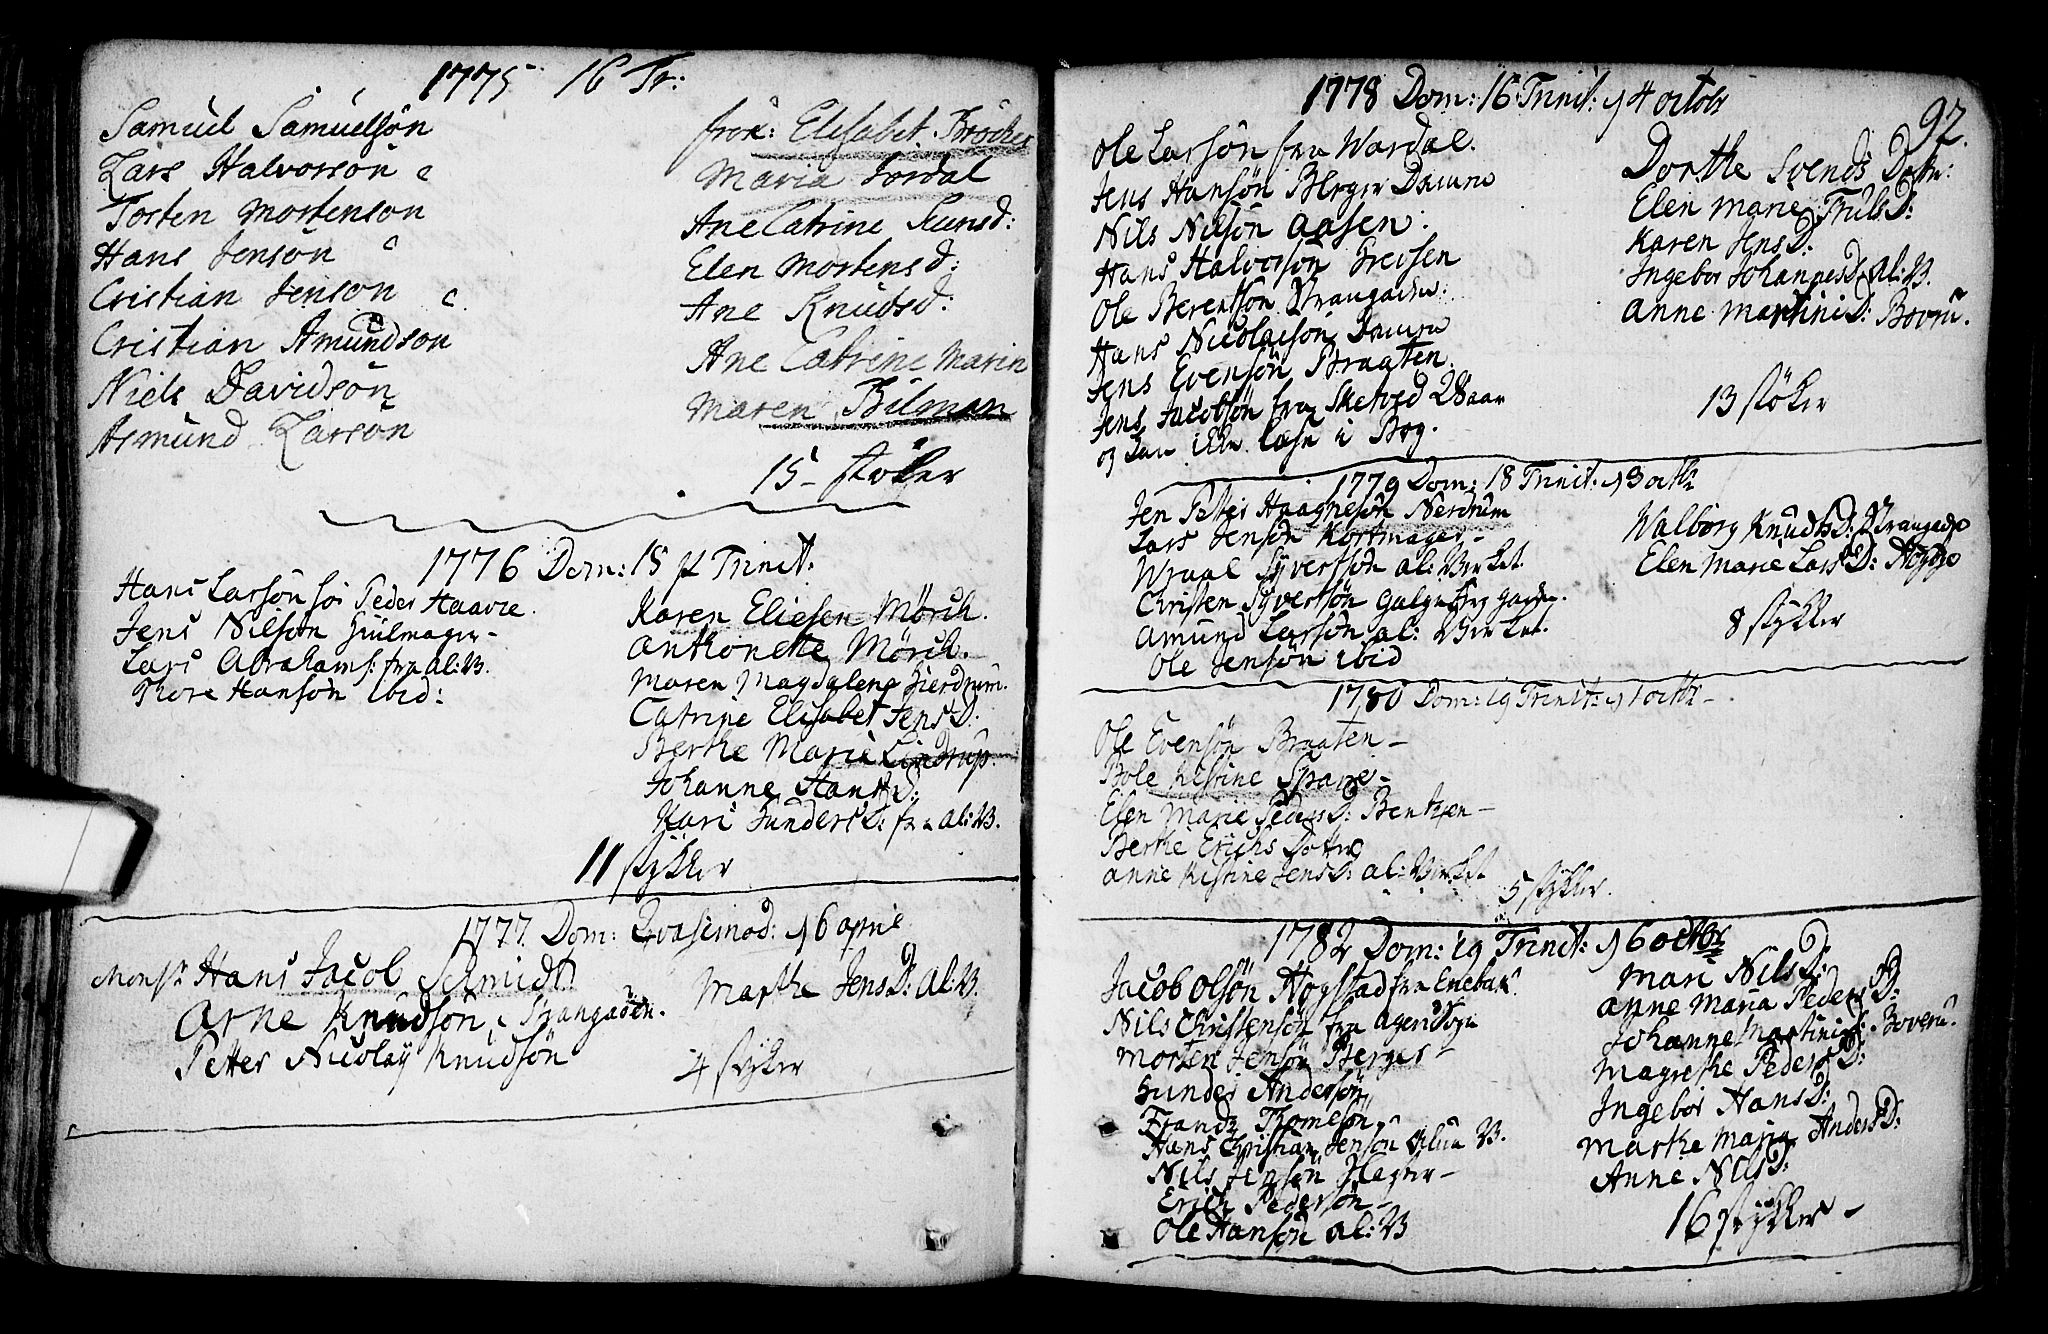 1775 16 Tr:
Samuel Samuelsøn
Lars Halvorsøn c
Torsten Mortenson
Hans Jensøn c
Cristian Jenson c
Cristian Amundson
Niels Davidsøn
Asmund Larsøn
frøk: Elisabet Brocher
Maria Lordal
Ane Catrine
Elen Mortensd:
Ane Knudsd:
Ane Catrine Marin
Maren Bilman
15 støker
1776 Dom: 18 p Trinit:
Hans Larsøn Peder Haavre
Jens Nilsøn Hiulmager
Lars Abrahams: fra Al: V.
Thore Hansøn ibid:
Karen Eliesen Mörch.
Anthonethe Mörch.
Maren Magdalena
Catrine Elisabet Jens D.
Berthe Marie Lindrup
Johanne Hans D:
Kari Gunders D: fra al: V.
11 stykker
1777 Dom: Qvasimod: d 6 april
Monsr Hans Jacob Schmidt
Arne Knudsøn
Petter Nicolay Knudsøn
Marthe Jens D: Al: V.
4 styker
92.
1778 Dom: 16 Trinit: d 4 octobr
Ole Larsøn fra Wardal.
Jens Hansøn Berger
Nils Nilsøn Aasen
Hans Halvorsøn
Ole Berentsøn
Hans Nicolaisøn
Jens Evensøn Braaten.
Jens Jacobsøn fra Sketved 28 aar
og kan ikke læse i Bog.
Dorthe Svends Dotter:
Elen Marie Truls D:
Karen Jens D:
Ingebor Johannes D. Al: V.
Anne Martini D: Boveru.
13 støker
1779 Dom: 18 Trinit: d 3 octbr
Jen Peter Haagnesøn Nerdrum
Lars Jensøn Kortmager
Wraal Syvertsøn al: Verket.
Christen Syvertsøn
Amund Larsøn al: Verket.
Ole Jensøn ibid
Walborg Knuds D:
Elen Marie Lars D:
8 stykker
1780 Dom: 19 Trinit: d 1 octbr
Ole Evensøn Braaten
Bole Kistine Sparre
Elen Marie Peders D: Bentzen
Berthe Erichs Dotter
Anne Kistine Jens D: al: Verket
5 stykker.
1782 Dom: 19 Trinit: d 6 octbr
Jacob Olsøn Høgstad fra Enebak
Nils Christensøn fra Agers Sogn
Morten Jensøn Berger
Gunder Andersøn
Frandz Thomesøn
Hans Christian Jensøn V.
Nils Jensøn
Erich Pedersøn
Ole Hansøn al: V
Mari Nils D:
Anne Maria Peders D:
Johanne Martini D: Boveru.
Magrethe Peders D:
Ingebor Hans D:
Marthe Maria Anders D:
Anne Nils D:
16 stykker